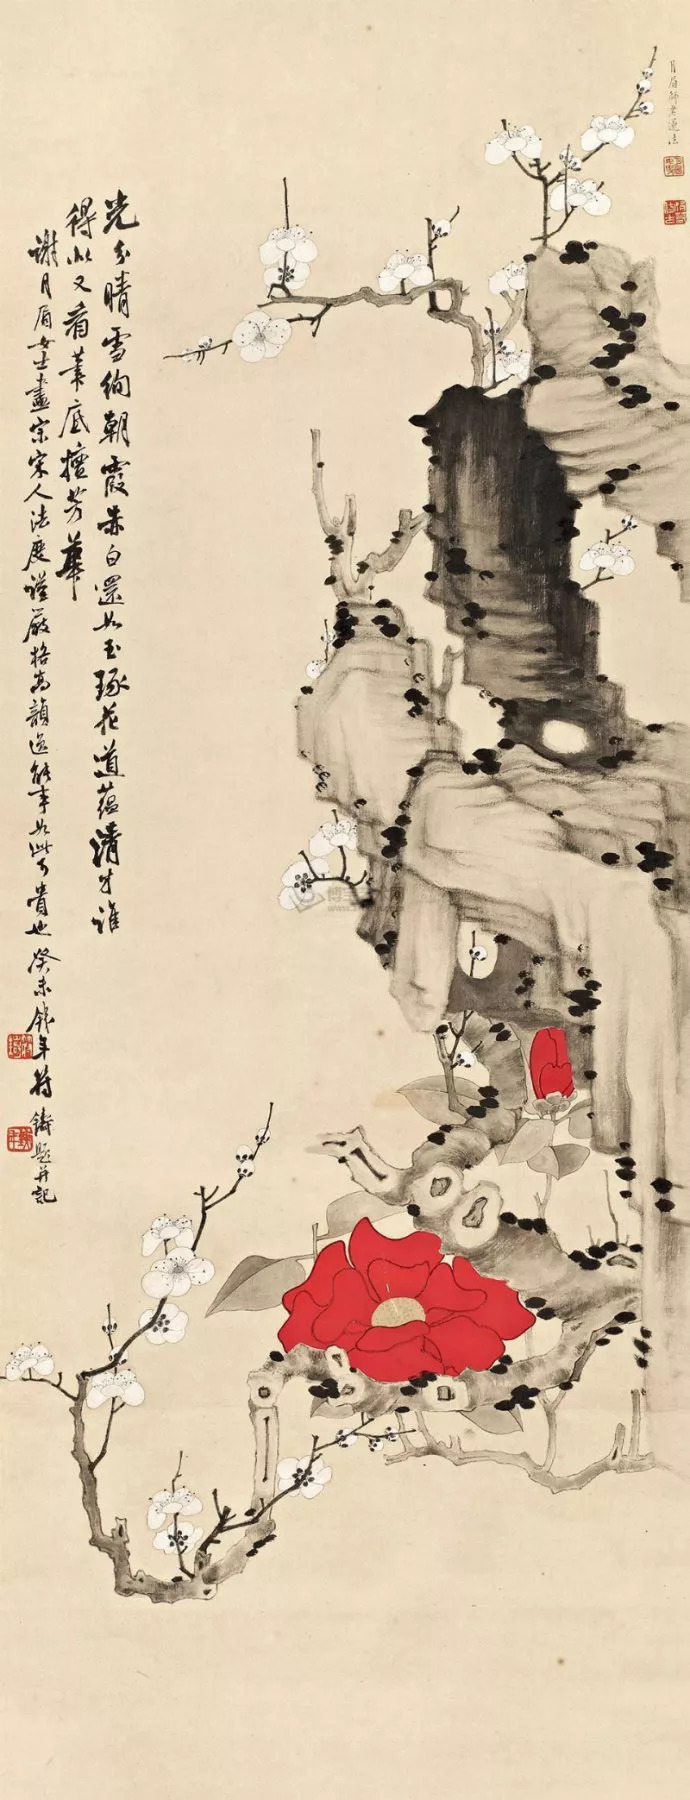 月眉師老蓮法
光分晴雪絢朝霞赤白還如玉琢花道蘊清才誰
得似又看筆底擅芳華
謝月眉女士畫宗宋人法度謹嚴格高韻逸能事如此可貴也癸未餞年符鑄題并記